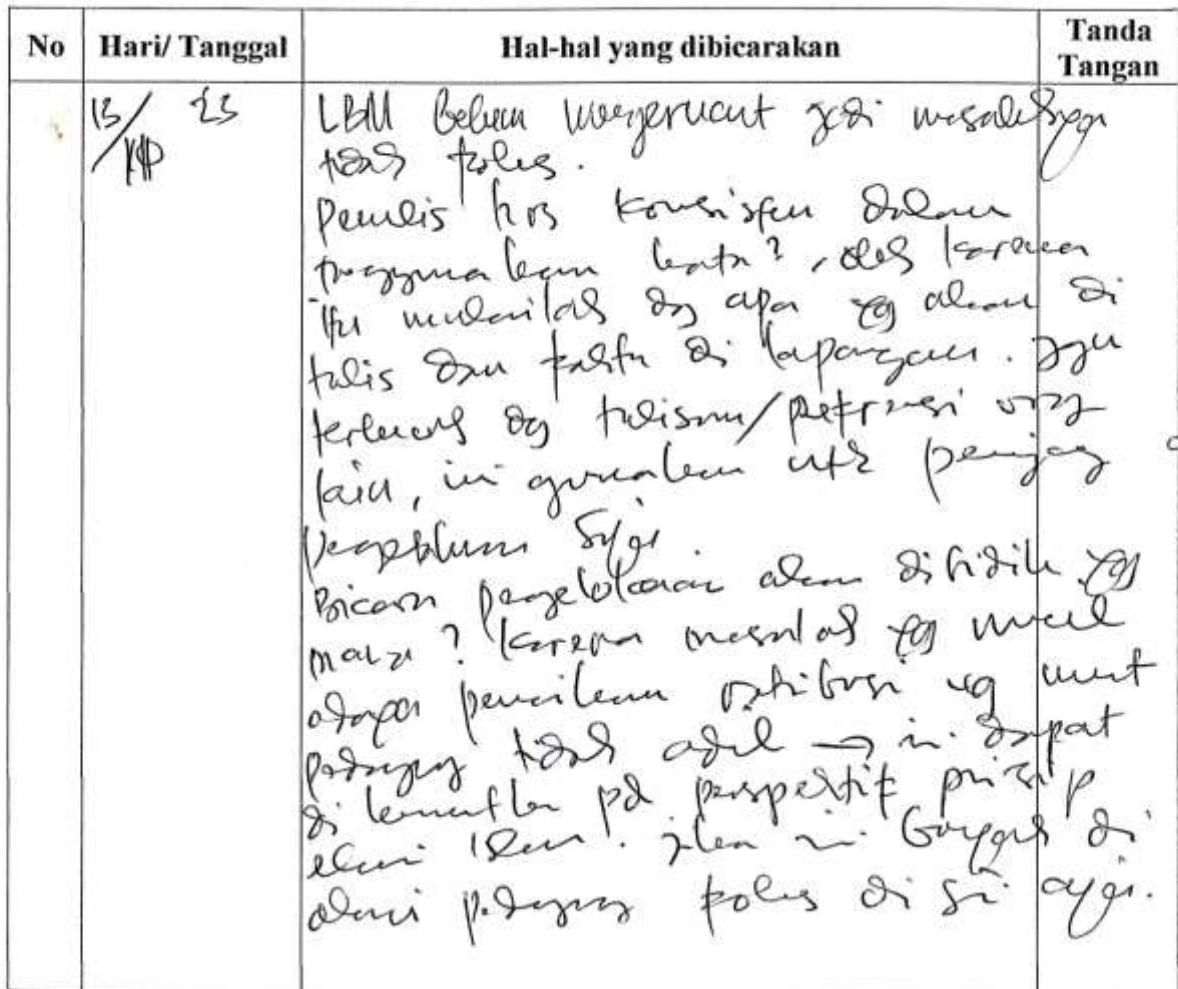 No Hari/ Tanggal Hal-hal yang dibicarakan Tanda Tangan
13/ 23 LBM Belum mengerucut jadi masalahnya
tidak fokus.
Penulis hrs konsisten dalam
menggunakan kata², oleh karena
itu mulailah dg apa yg akan di
tulis dan fakta di lapangan. jgn
terkecoh dg tulisan/referensi orang
lain, ini gunakan utk penunjang
saja.
Bicara pengelolaan akan dibidik yg
mana? Karena masalah yg muncul
adanya penarikan retribusi yg
pedagang tidak adil → ini dapat
di pd perspektif prinsip
jika ini banyak di
alami pedagang fokus di si aja.